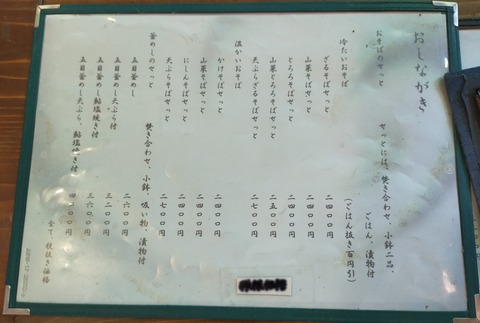 おしながき
おそばのせっと
せっとには、焚き合わせ、小鉢二品、
ごはん、漬物付
(ごはん抜き百円引)
冷たいおそば
ざるそばせっと 二四〇〇円
山菜そばせっと 二四〇〇円
とろろそばせっと 二四〇〇円
山菜とろろそばせっと 二五〇〇円
天ぷらざるそばせっと 二七〇〇円
温かいおそば
かけそばせっと 二四〇〇円
山菜そばせっと 二四〇〇円
にしんそばせっと 二四〇〇円
天ぷらそばせっと 二七〇〇円
釜めしのせっと
焚き合わせ、小鉢、吸い物、漬物付
五目釜めし 二六〇〇円
五目釜めし天ぷら付 三二〇〇円
五目釜めし鮎塩焼き付 三六〇〇円
五目釜めし天ぷら、鮎塩焼き付 四二〇〇円
全て、税抜き価格